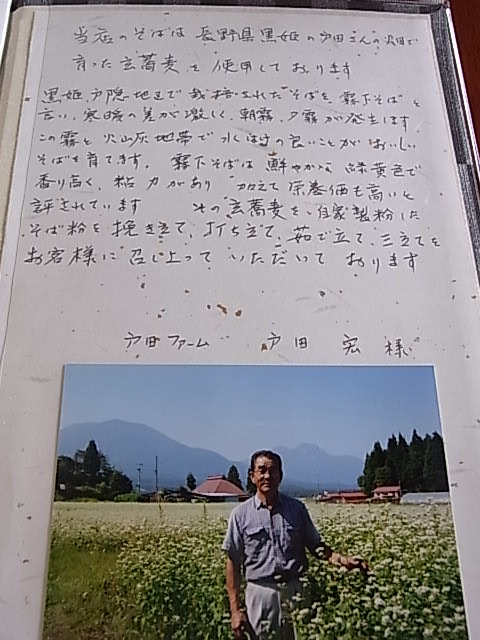 当店のそばは 長野県黒姫の戸田さんの畑で
育った玄蕎麦を使用しております
黒姫、戸隠地区で栽培されたそばを、霧下そばと
言い、寒暖の差が激しく、朝霧、夕霧が発生します。
この霧と火山灰地帯で水はけの良いことがおいしい
そばを育てます。霧下そばは鮮やかな緑黄色で
香り高く、粘力があり 加えて栄養価も高いと
評されています その玄蕎麦を、自家製粉した
そば粉を挽き立て、打ち立て、茹で立て、三立てを
お客様に召し上っていただいております
戸田ファーム 戸田 宏 様